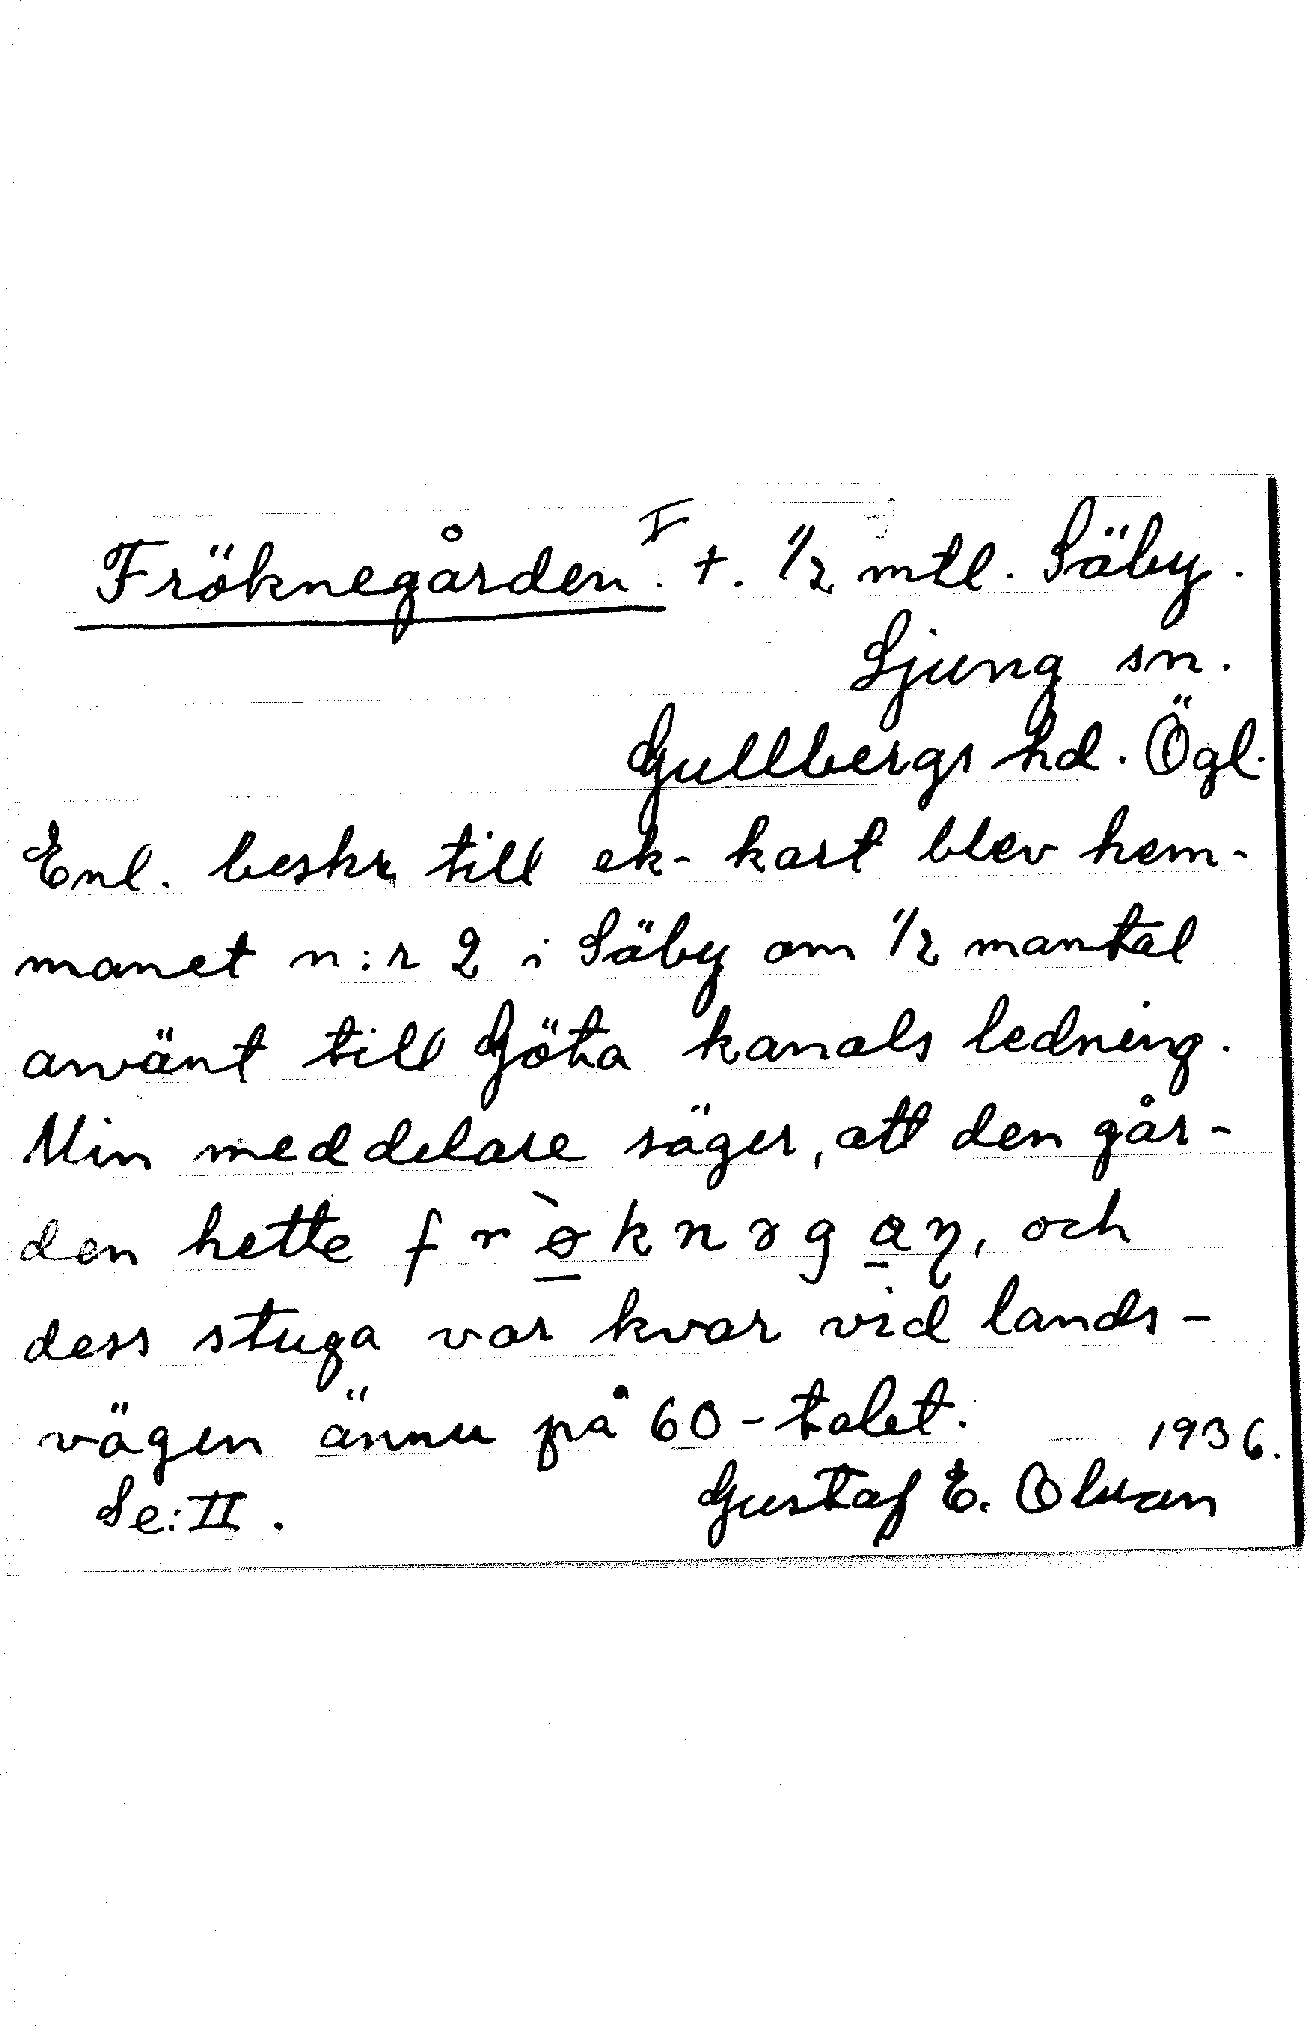 Fröknegården. I †. 1/2 mtl. Säby.
Ljung sn.
Gullbergs hd. Ögl.
Enl. beskr. till ek-kart blev hem-
manet n:r 2 i Säby om 1/2 mantal
använt till Göta kanals ledning.
Min meddelare säger, att den går-
den hette frø̀knəgaɳ, och
dess stuga var kvar vid lands-
vägen ännu på 60-talet. 1936.
Se: II. Gustaf E. Olvan